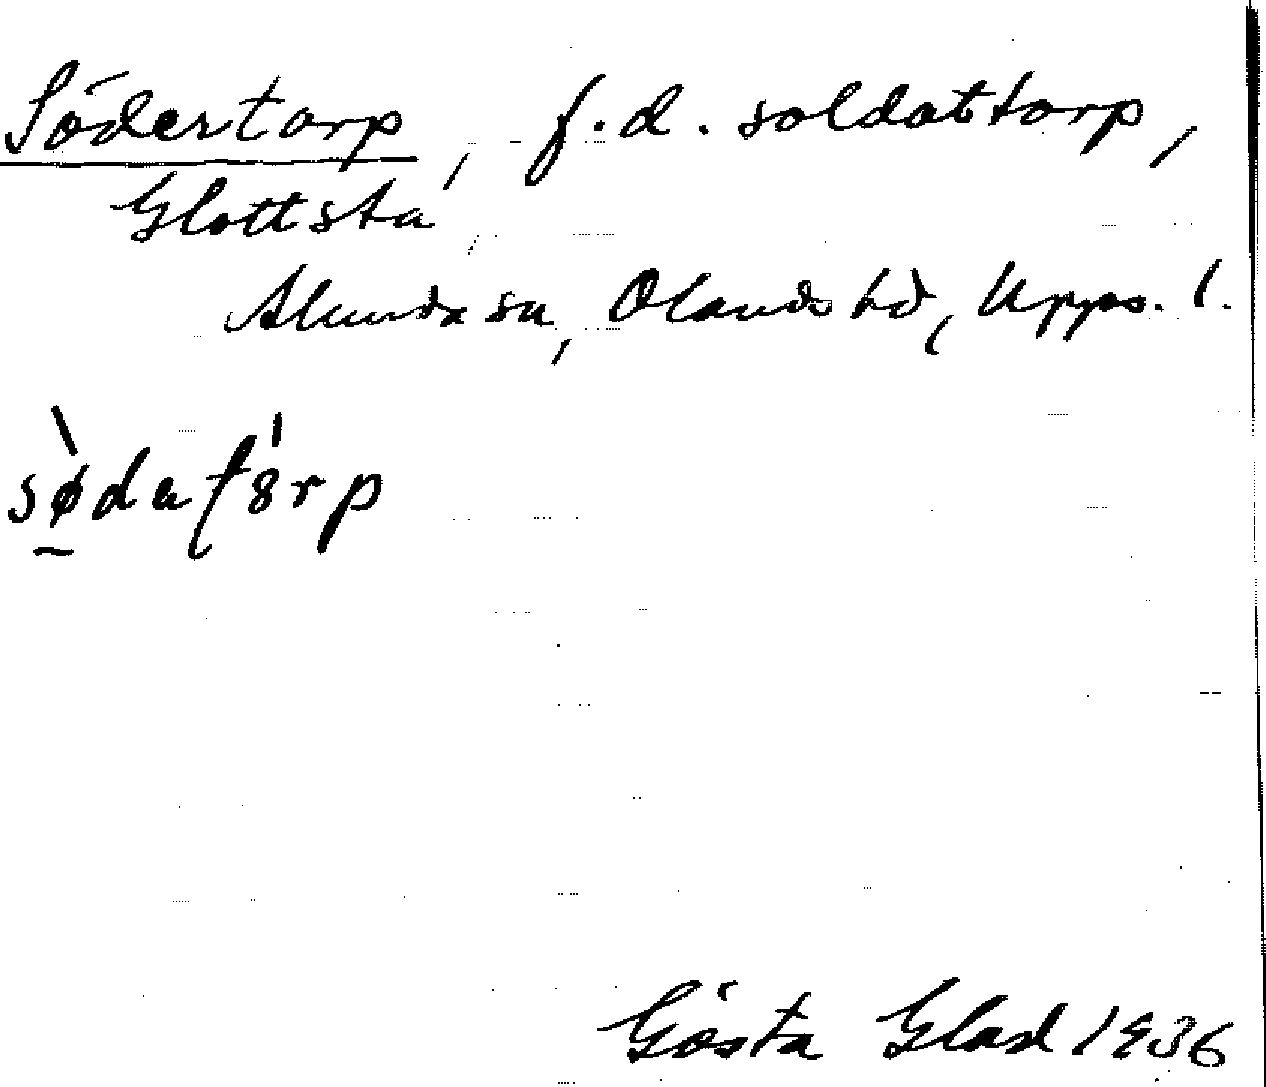 Södertorp, f.d. soldattorp,
Glottsta
Alunda sn, Olands hd, Upps. l.
sø̀daʈ8́rp
Gösta Glad 1936